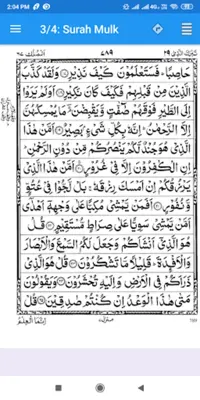 2:04 PM
84
3/4: Surah Mulk
تَبٰرَكَ الَّذِىْ ٢٩
٤٨٩
الْمُلْك ٦٧
حَاصِبًا ؕ فَسَتَعْلَمُوْنَ كَيْفَ نَذِيْرِ ۝ وَلَقَدْ كَذَّبَ
الَّذِيْنَ مِنْ قَبْلِهِمْ فَكَيْفَ كَانَ نَكِيْرِ ۝ اَوَلَمْ يَرَوْا
اِلَى الطَّيْرِ فَوْقَهُمْ صٰٓفّٰتٍ وَّيَقْبِضْنَ ؕ مَا يُمْسِكُهُنَّ
اِلَّا الرَّحْمٰنُ ؕ اِنَّهٗ بِكُلِّ شَىْءٍۭ بَصِيْرٌ ۝ اَمَّنْ هٰذَا
الَّذِىْ هُوَ جُنْدٌ لَّكُمْ يَنْصُرُكُمْ مِّنْ دُوْنِ الرَّحْمٰنِ ؕ
اِنِ الْكٰفِرُوْنَ اِلَّا فِىْ غُرُوْرٍ ۝ اَمَّنْ هٰذَا الَّذِىْ
يَرْزُقُكُمْ اِنْ اَمْسَكَ رِزْقَهٗ ۚ بَلْ لَّجُّوْا فِىْ عُتُوٍّ
وَّنُفُوْرٍ ۝ اَفَمَنْ يَّمْشِىْ مُكِبًّا عَلٰى وَجْهِهٖٓ اَهْدٰٓى
اَمَّنْ يَّمْشِىْ سَوِيًّا عَلٰى صِرَاطٍ مُّسْتَقِيْمٍ ۝ قُلْ
هُوَ الَّذِىْٓ اَنْشَاَكُمْ وَجَعَلَ لَكُمُ السَّمْعَ وَالْاَبْصَارَ
وَالْاَفْـِٕدَةَ ؕ قَلِيْلًا مَّا تَشْكُرُوْنَ ۝ قُلْ هُوَ الَّذِىْ
ذَرَاَكُمْ فِى الْاَرْضِ وَاِلَيْهِ تُحْشَرُوْنَ ۝ وَيَقُوْلُوْنَ
مَتٰى هٰذَا الْوَعْدُ اِنْ كُنْتُمْ صٰدِقِيْنَ ۝ قُلْ
اِنَّمَا الْعِلْمُ